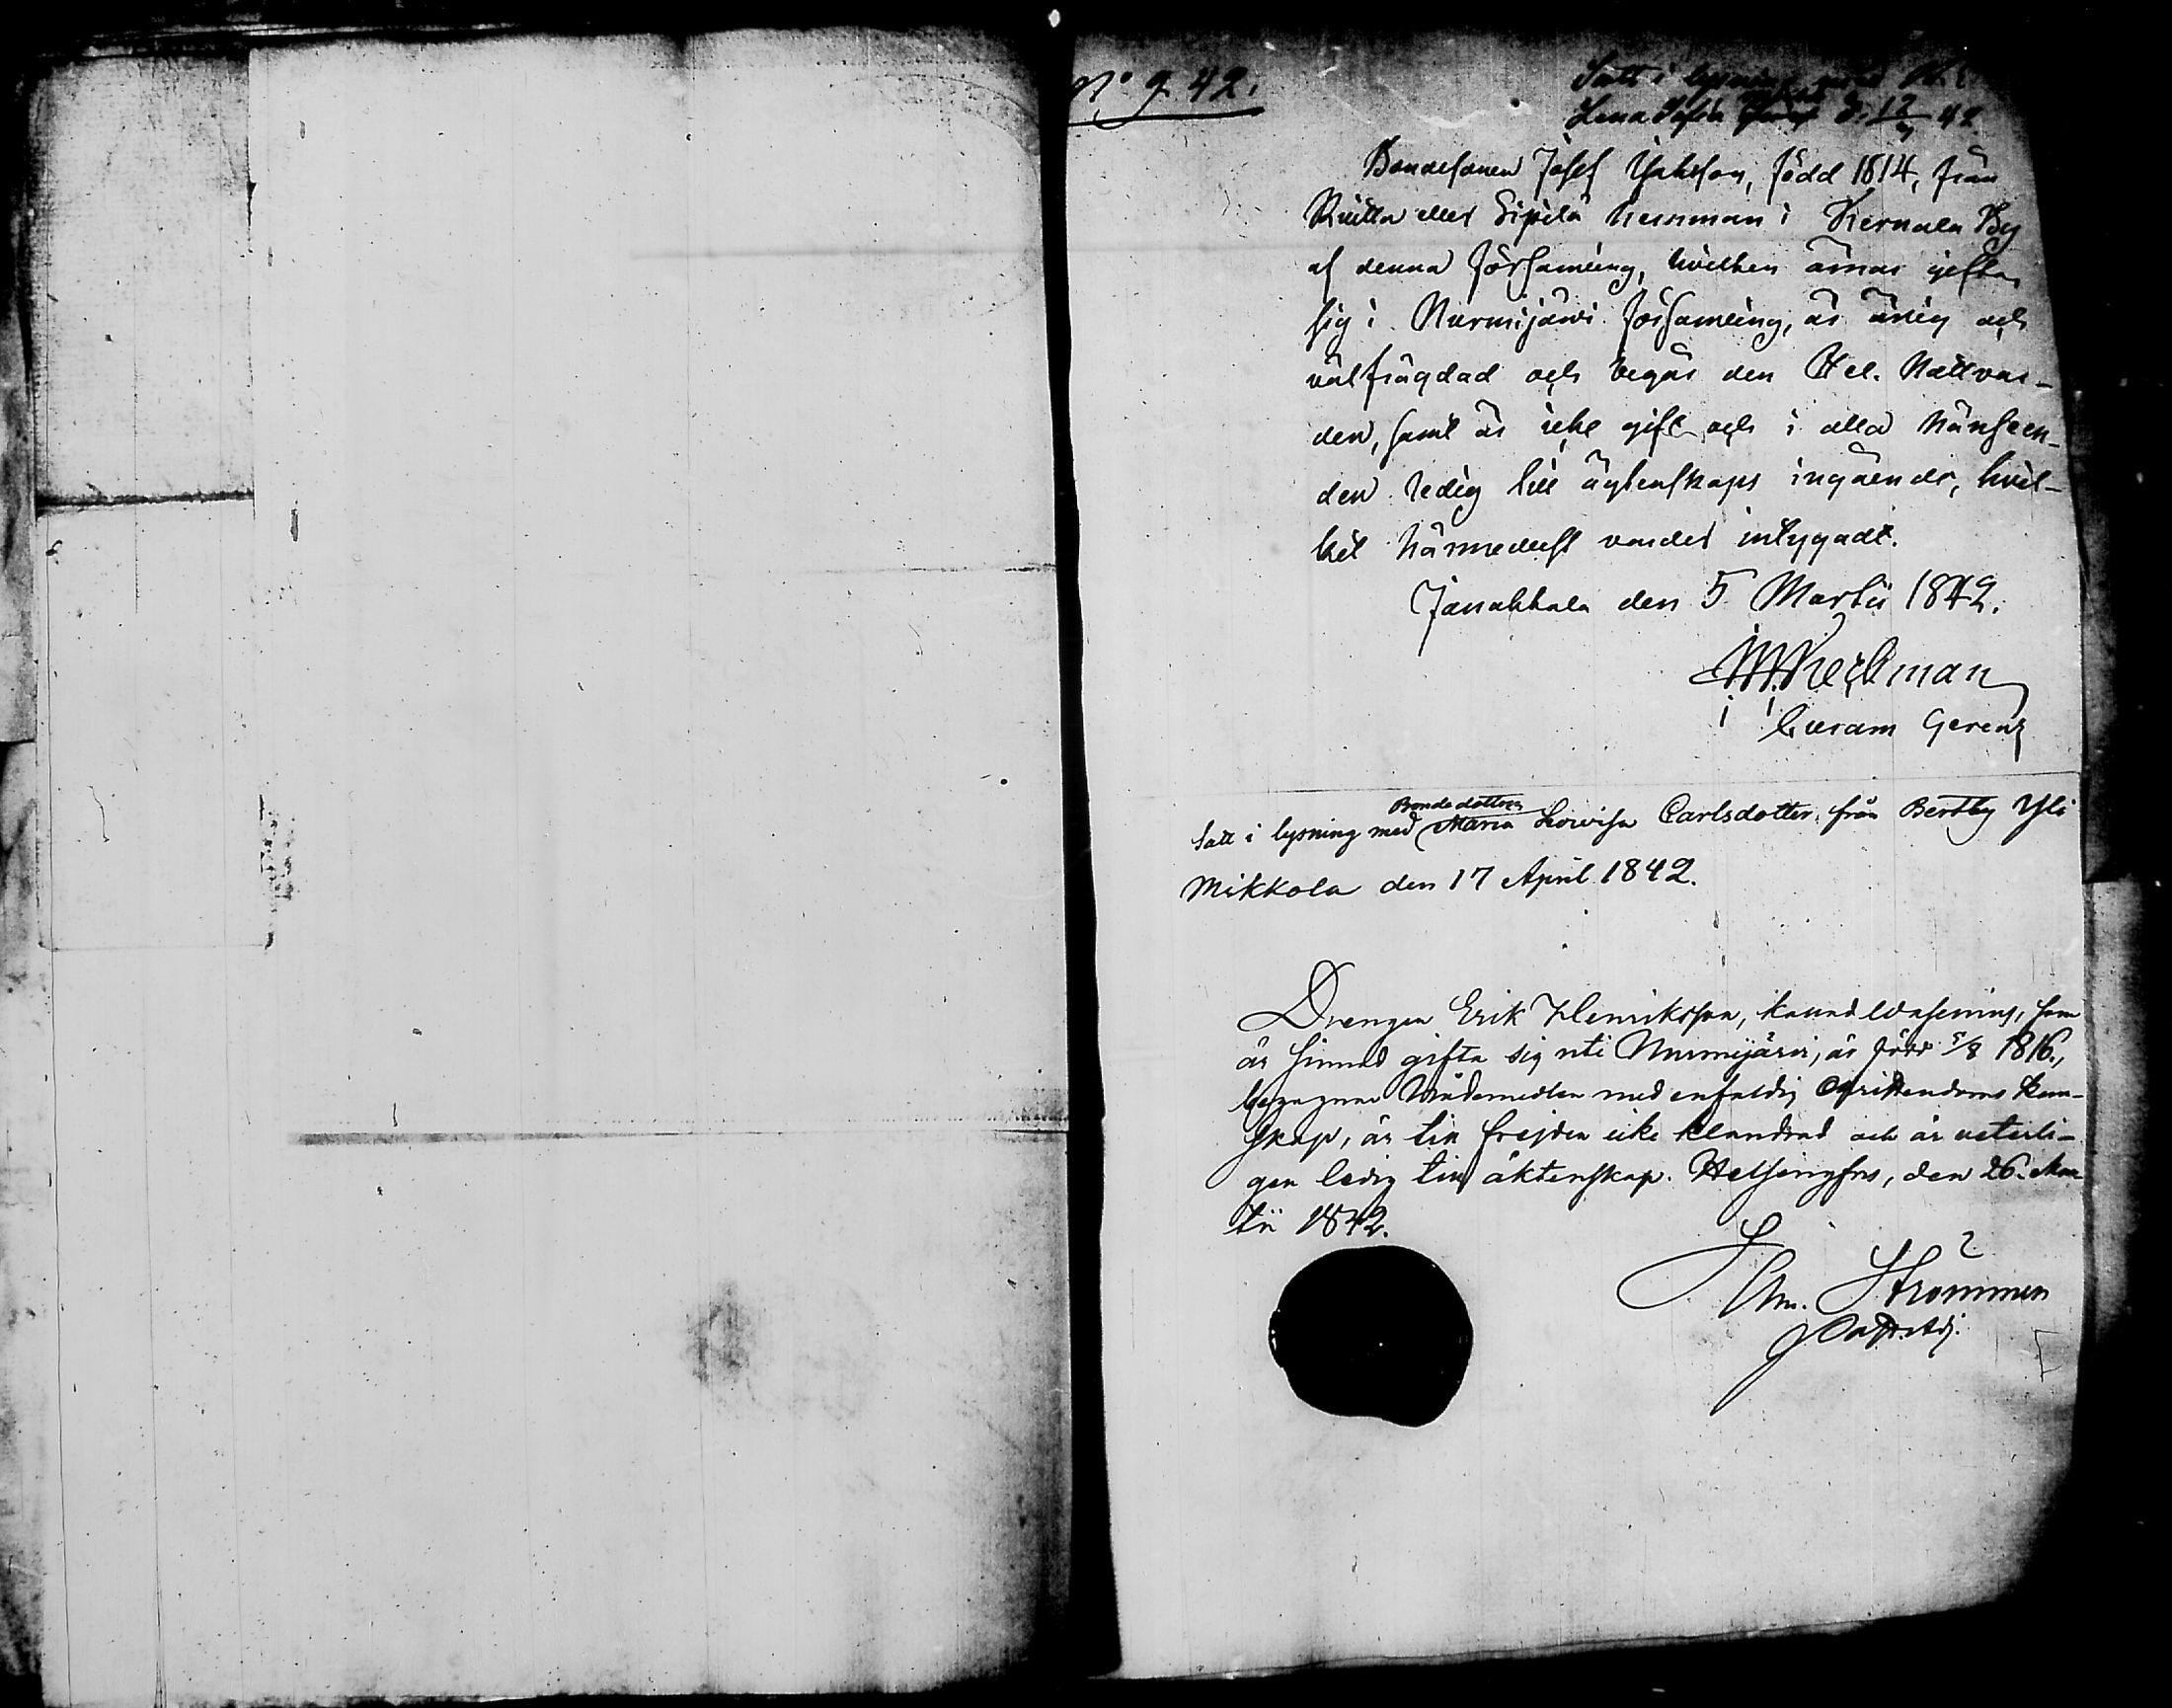 N° 9. 42.
Satt i lysning med
Lena Sofia d. 12/4 42
Bondesonen Josef Josefsson, född 1814, från
eller Sipilä hemman i Kernala By
af denna församling, hvilken ämnar gifta
sig i Nurmijärvi församling, är ärlig och
välfrägdad och begår den Hel. Nattvar-
den, samt är icke gift och i alla hänseen-
den ledig till ägtenskaps ingående, hvil-
ket härmedelst varder intygadt.
Janakkala den 5 Martii 1842.
Curam Gerens
Bondedottren
Satt i lysning med Maria Lovisa Carlsdotter från Bertby Yli
Mikkola den 17 April 1842.
Drengen Erik Henriksson, som
är sinnad gifta sig uti Nurmijärvi, är född 5/8 1816,
begagnar Nådemedlen med enfaldig Christendoms kun-
skap, är till frejden icke klandrad och är veterli-
gen ledig till äktenskap. Helsingfors, den 26. Mar-
tii 1842.